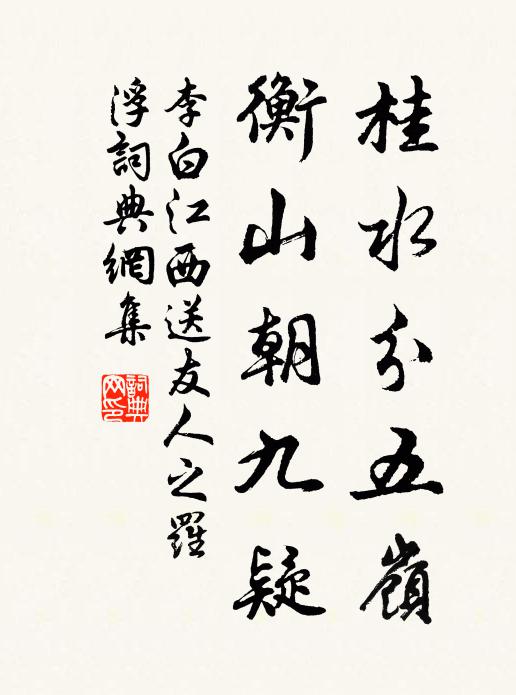 桂水分五嶺
衡山朝九疑
李白江西送友人之羅
浮詞典網集
詞典
网印